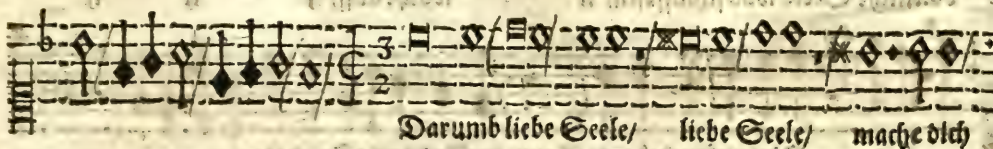 3
2
Darumb liebe Seele/ liebe Seele/ mache dich